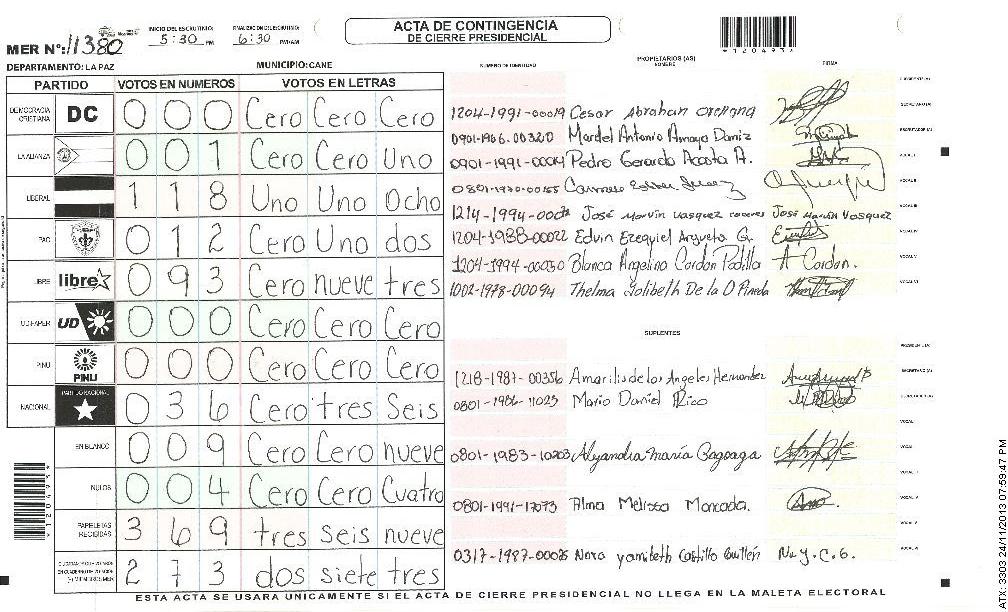 MER Nº: 11380
INICIO DEL ESCRUTINIO:
5:30 PM
FINALIZACION DEL ESCRUTINIO:
6:30 PM/AM
ACTA DE CONTINGENCIA
DE CIERRE PRESIDENCIAL
1204937
DEPARTAMENTO: LA PAZ
MUNICIPIO: CANE
NUMERO DE IDENTIDAD
PROPIETARIOS (AS)
NOMBRE
FIRMA
PARTIDO
VOTOS EN NUMEROS
VOTOS EN LETRAS
DEMOCRACIA CRISTIANA DC 0 0 0 Cero Cero Cero
LA ALIANZA 0 0 1 Cero Cero Uno
LIBERAL 1 1 8 Uno Uno Ocho
PAC 0 1 2 Cero Uno dos
LIBRE libre 0 9 3 Cero nueve tres
UD FAPER UD 0 0 0 Cero Cero Cero
PINU PINU 0 0 0 Cero Cero Cero
NACIONAL PARTIDO NACIONAL 0 3 6 Cero tres Seis
EN BLANCO 0 0 9 Cero Cero nueve
NULOS 0 0 4 Cero Cero Cuatro
PAPELETAS RECIBIDAS 3 6 9 tres seis nueve
2 7 3 dos siete tres
1204-1991-00019 Cesar Abrahan Orellana
SECRETARIO (A)
0901-1966-00320 Mardel Antonio
ESCRUTADOR (A)
0901-1991-0004 Pedro Gerardo Acosta A.
VOCAL I
0801-1970-00155
VOCAL II
1214-1994-000 José Marvin Vasquez José Marvin Vasquez
VOCAL III
1204-1988-00022 Edvin Ezequiel Argueta G.
VOCAL IV
1204-1994-00030 Blanca Angelina Cordon Padilla A Cordon.
VOCAL V
1002-1978-00094 Thelma Yolibeth De la O Pineda
VOCAL VI
SUPLENTES
PRESIDENTE (A)
1218-1987-00356 Amarilis de los Angeles Hernandez
SECRETARIO (A)
0801-1986-11023 Mario Daniel Rico
ESCRUTADOR (A)
0801-1983-10203 Alejandra María Gagoaga
0801-1991-17073 Alma Melissa Moncada.
0317-1987-00085 Nora Yamileth Castillo Guillén N.Y.C.G.
ESTA ACTA SE USARA UNICAMENTE SI EL ACTA DE CIERRE PRESIDENCIAL NO LLEGA EN LA MALETA ELECTORAL
1204937
ATX: 3303 24/11/2013 07:59:47 PM